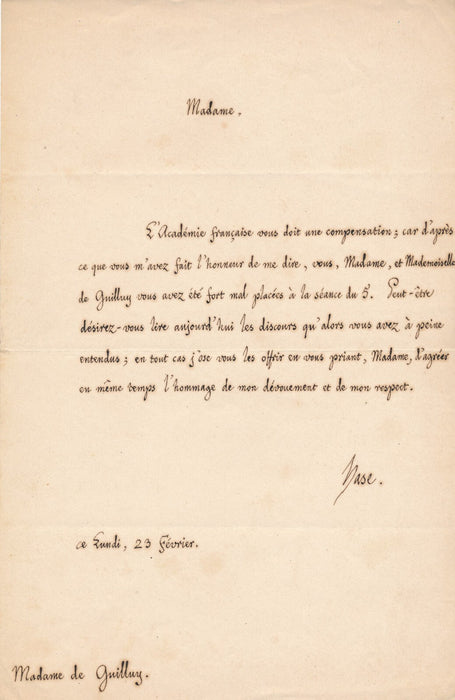 Madame.
L'Académie française vous doit une compensation; car d'après
ce que vous m'avez fait l'honneur de me dire, vous, Madame, et Mademoiselle
de Guilluy vous avez été fort mal placées à la séance du 5. Peut-être
désirez-vous lire aujourd'hui les discours qu'alors vous avez à peine
entendus; en tout cas j'ose vous les offrir en vous priant, Madame, d'agréer
en même temps l'hommage de mon dévouement et de mon respect.
Hase.
ce Lundi, 23 Février.
Madame de Guilluy.